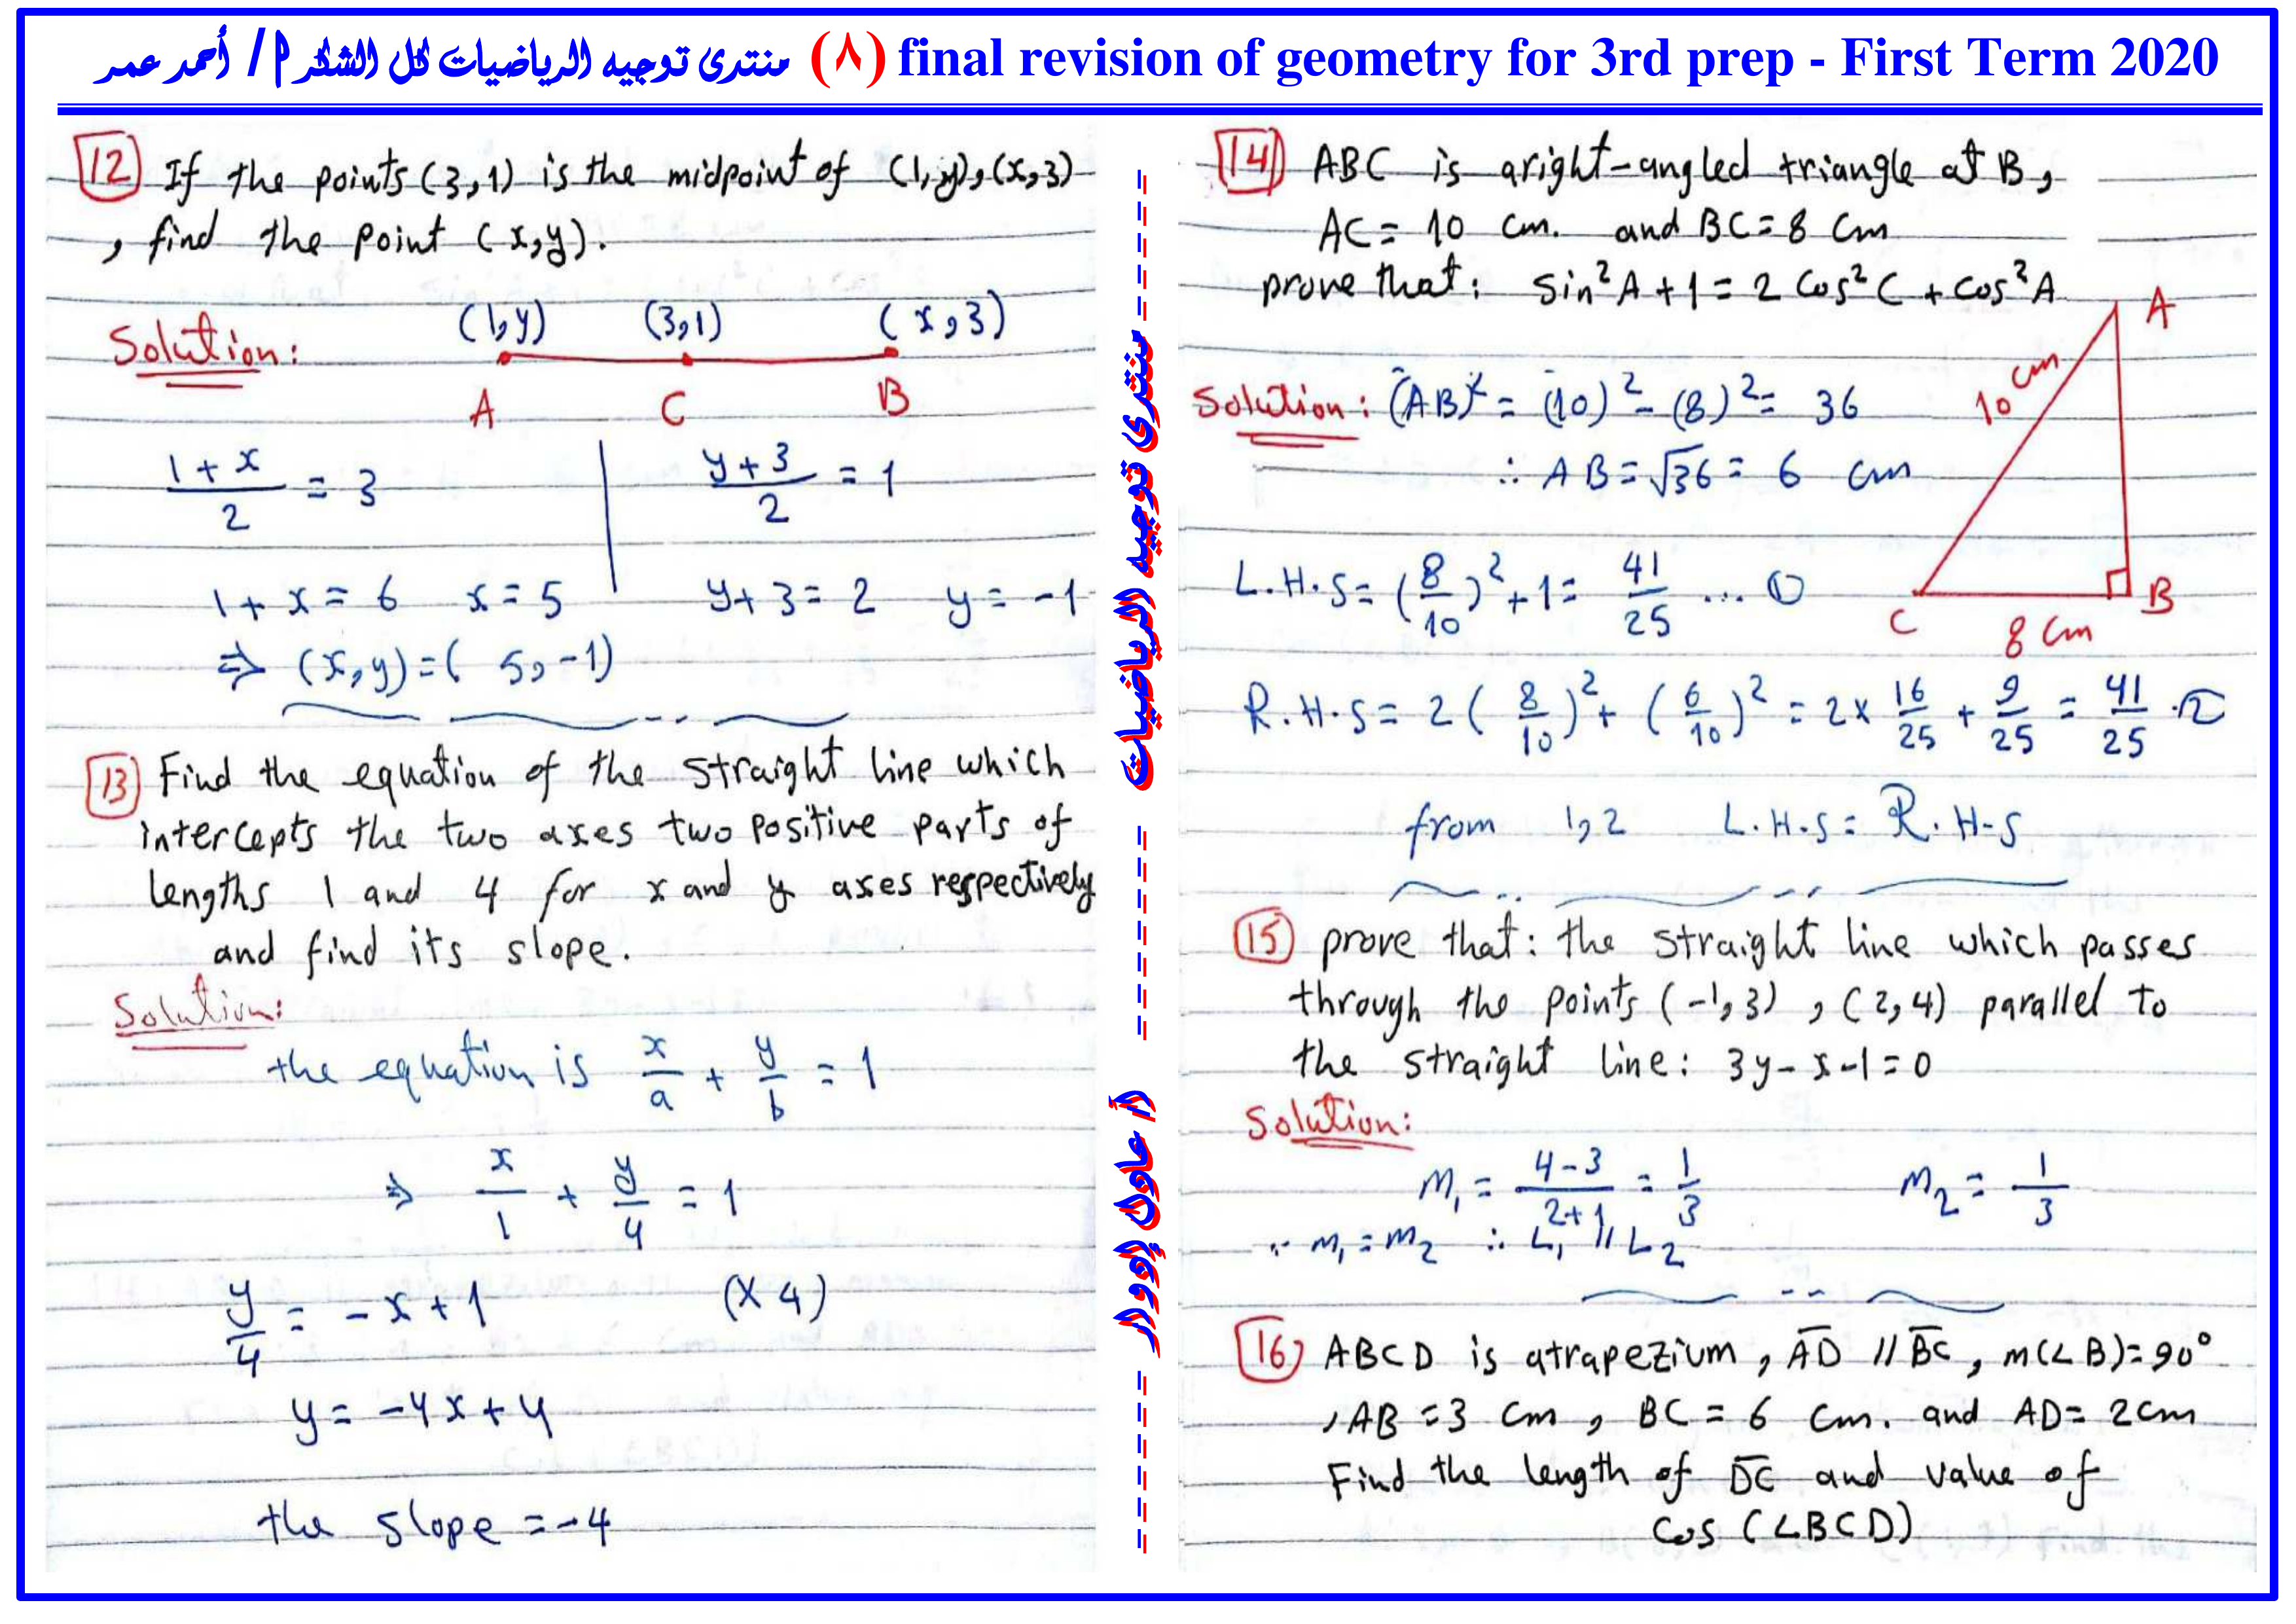 منتدى توجيه الرياضيات لكل الشكر ا / أحمد عمر (٨) final revision of geometry for 3rd prep - First Term 2020
12 If the points (3,1) is the midpoint of (1,y), (x,3)
, find the point (x,y).
Solution:
(1,y) (3,1) (x,3)
A C B
1+x/2 = 3 y+3/2 = 1
1+x=6 x=5 y+3=2 y=-1
⇒ (x,y)=(5,-1)
13 Find the equation of the straight line which
intercepts the two axes two positive parts of
lengths 1 and 4 for x and y axes respectively
and find its slope.
Solution:
the equation is x/a + y/b = 1
⇒ x/1 + y/4 = 1
y/4 = -x+1 (×4)
y= -4x+4
the slope =-4
منتدى توجيه الرياضيات
أ/ عادل إدوار
14 ABC is aright-angled triangle at B,
AC= 10 cm. and BC=8 cm
prove that: sin²A+1=2 cos²C+cos²A
A
10 cm
Solution: (AB)² = (10)²-(8)²= 36
∴ AB=√36= 6 cm
L.H.S=(8/10)²+1= 41/25 ... ①
C B
8 cm
R.H.S= 2(8/10)²+(6/10)² = 2× 16/25 + 9/25 = 41/25 .②
from 1,2 L.H.S= R.H.S
15 prove that: the straight line which passes
through the points (-1,3) , (2,4) parallel to
the straight line: 3y-x-1=0
Solution:
m₁ = 4-3/2+1 = 1/3 m₂ = 1/3
∵ m₁=m₂ ∴ L₁ // L₂
16 ABCD is atrapezium, A̅D̅ // B̅C̅, m(∠B)=90°
,AB=3 cm, BC=6 cm. and AD= 2cm
Find the length of D̅C̅ and value of
cos (∠BCD)